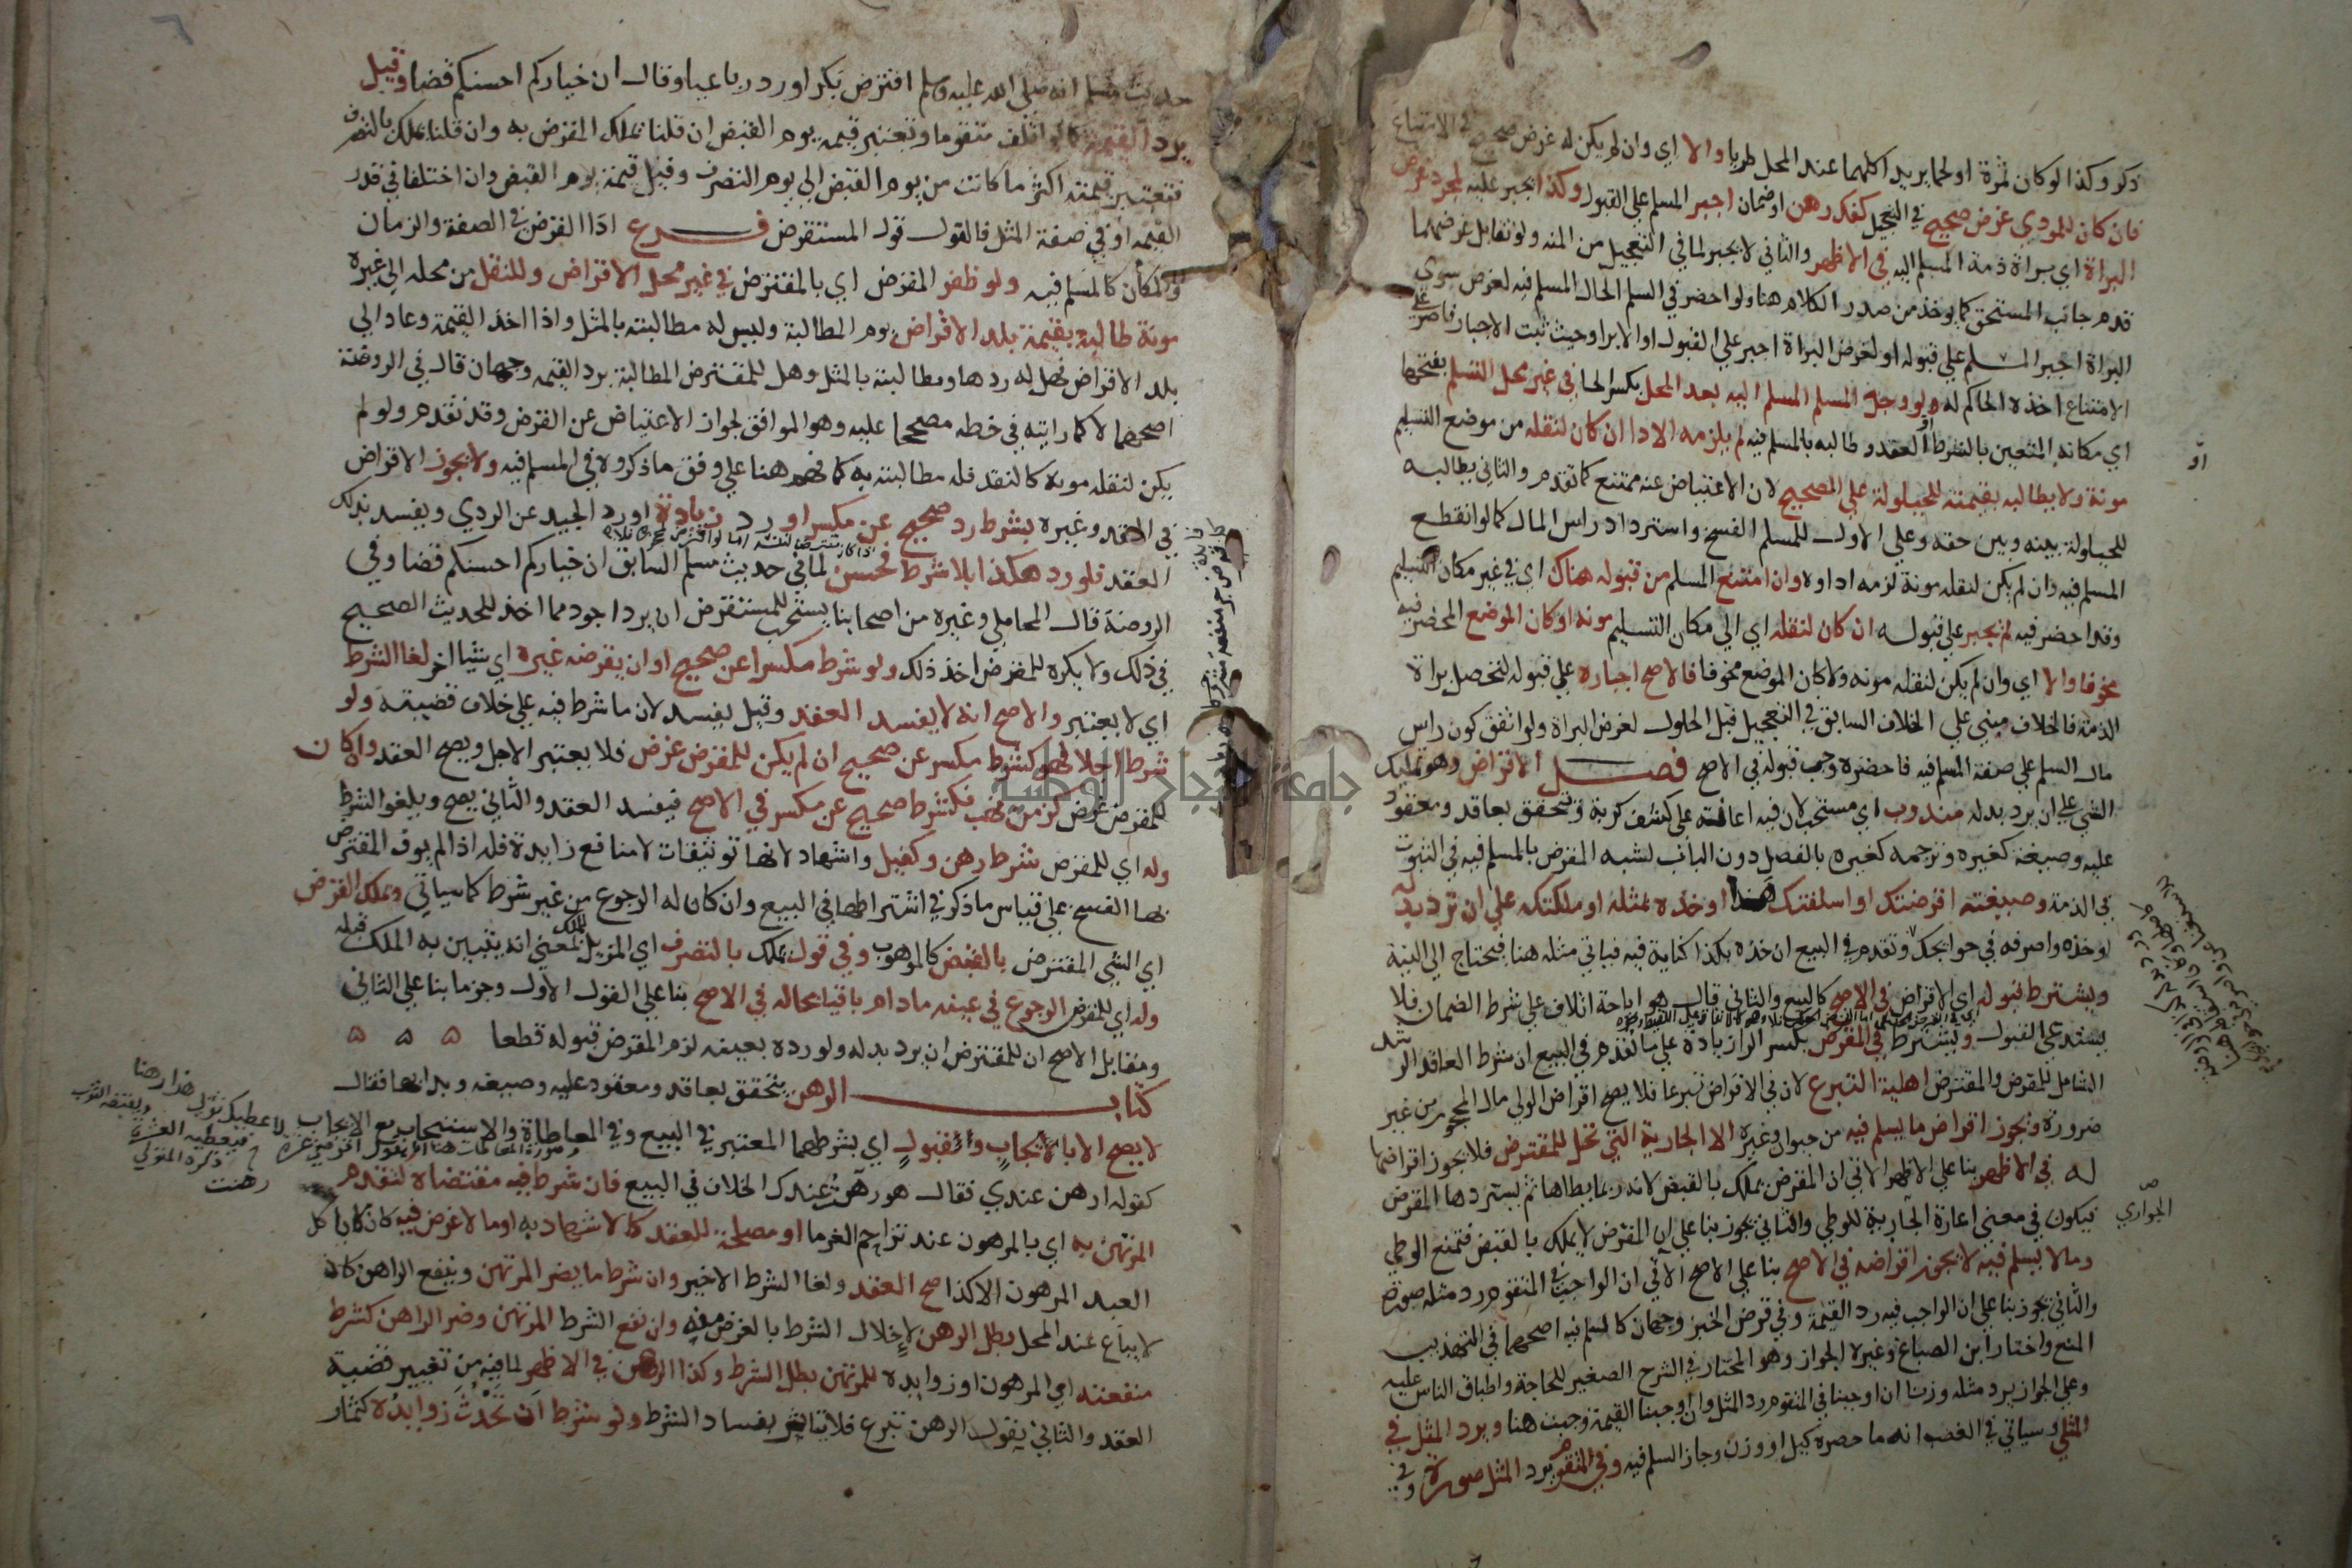 ذكر وكذا لو كان تمرة او لحما يريد اكلهما عند المحل طريا والا اي وان لم يكن له غرض صحيح في الامتناع
فان كان للمودي غرض صحيح في التعجيل كفك رهن او ضمان اجبر المسلم علي القبول وكذا يجبر عليه لمجرد غرض
البراة اي براة ذمة المسلم اليه في الاظهر والثاني لا يجبر لما في التعجيل من المنه ولو تقابل غرضهما
قدم جانب المستحق كما يوخذ من صدر الكلام هنا ولو احضر في السلم الحال المسلم فيه لغرض سوي
البراة اجبر المسلم علي قبوله او لغرض البراة اجبر علي القبول او الابرا وحيث ثبت الاجبار فاصر علي
الامتناع اخذه الحاكم له ولو وجد المسلم المسلم اليه بعد المحل بكسر الحا في غير محل التسلم بفتحها
اي مكانه المتعين بالشرط او العقد وطالبه بالمسلم فيه لم يلزمه الادا ان كان لنقله من موضع التسليم
مونة ولا يطالبه بقيمته للحيلولة علي الصحيح لان الاعتياض عنه ممتنع كما تقدم والثاني يطالبه
للحيلولة بينه وبين حقه وعلي الاول للمسلم الفسخ واسترداد راس المال كما لو انقطع
المسلم فيه وان لم يكن لنقله مونة لزمه اداوه وان امتنع المسلم من قبوله هناك اي في غير مكان التسليم
وقد احضر فيه لم يجبر علي قبوله ان كان لنقله اي الي مكان التسليم مونه او كان الموضع المحضر فيه
مخوفا والا اي وان لم يكن لنقله مونه ولا كان الموضع مخوفا فالاصح اجباره علي قبوله لتحصل براة
الذمة فالخلاف مبني علي الخلاف السابق في التعجيل قبل الحلول لغرض البراة ولو اتفق كون راس
مال السلم علي صفة المسلم فيه فاحضره وجب قبوله في الاصح فصل الاقراض وهو تمليك
الشي علي ان يرد بدله مندوب اي مستحب لان فيه اعانة علي كشف كربة ويتحقق بعاقد ومعقود
عليه وصيغة كغيره وترجمه كغيره بالفصل دون الباب لشبه المقرض بالمسلم فيه في الثبوت
في الذمة وصيغته اقرضتك او اسلفتك هذا او خذه بمثله او ملكتكه علي ان ترد بدله
او خذه واصرفه في حوايجك وتقدم في البيع ان خذه بكذا كناية فيه فياتي مثله هنا فيحتاج الي النية
ويشترط قبوله اي الاقراض في الاصح كالبيع والثاني قال هو اباحة اتلاف علي شرط الضمان فلا
يستدعي القبول ويشترط في المقرض بكسر الرا زيادة علي ما تقدم في البيع ان شرط العاقد الرشد
الشامل للمقرض والمقترض اهلية التبرع لان في الاقراض تبرعا فلا يصح اقراض الولي مال المحجور من غير
ضرورة ويجوز اقراض ما يسلم فيه من حيوان وغيره الا الجارية التي تحل للمقترض فلا يجوز اقراضها
له في الاظهر بنا علي الاظهر الاتي ان المقرض يملك بالقبض لانه ربما يطاها ثم يستردها المقرض
فيكون في معني اعارة الجارية للوطي والثاني يجوز بنا علي ان المقرض لا يملك بالقبض فتمنع الوطي
وما لا يسلم فيه لا يجوز اقراضه في الاصح بنا علي الاصح الاتي ان الواجب في المتقوم رد مثله صورة
والثاني يجوز بنا علي ان الواجب فيه رد القيمة وفي قرض الخبز وجهان كالسلم فيه اصحهما في التهذيب
المنع واختار ابن الصباغ وغيره الجواز وهو المختار في الشرح الصغير للحاجة واطباق الناس عليه
وعلي الجواز يرد مثله وزنا ان اوجبنا في المتقوم رد المثل وان اوجبنا القيمة وجبت هنا ويرد المثل في
المثلي وسياتي في الغصب انه ما حصره كيل او وزن وجاز السلم فيه وفي المتقوم يرد المثل صورة
وفي
او
الجواري
حديث مسلم انه صلي الله عليه وسلم اقترض بكرا ورد رباعيا وقال ان خياركم احسنكم قضا وقيل
يرد القيمة كما لو اتلف متقوما وتعتبر قيمه يوم القبض ان قلنا يملك المقرض به وان قلنا يملك بالتصرف
فتعتبر قيمته اكثر ما كانت من يوم القبض الي يوم التصرف وقيل قيمة يوم القبض وان اختلفا في قدر
القيمه او في صفة المثل فالقول قول المستقرض فرع ادا القرض في الصفة والزمان
والمكان كالمسلم فيه ولو ظفر المقرض اي بالمقترض في غير محل الاقراض وللنقل من محله الي غيره
مونة طالبه بقيمة بلد الاقراض يوم المطالبة وليس له مطالبته بالمثل واذا اخذ القيمة وعاد الي
بلد الاقراض فهل له ردها ومطالبته بالمثل وهل للمقترض المطالبة برد القيمه وجهان قال في الروضة
اصحهما لا كما رايته في خطه مصححا عليه وهو الموافق لجواز الاعتياض عن القرض وقد تقدم ولو لم
يكن لنقله مونة كالنقد فله مطالبته به كما فهم هنا علي وفق ما ذكروه في المسلم فيه ولا يجوز الاقراض
في النقد وغيره بشرط رد صحيح عن مكسر او رد زيادة او رد الجيد عن الردي ويفسد بذلك
العقد فلو رد هكذا بلا شرط فحسن لما في حديث مسلم السابق ان خياركم احسنكم قضا وفي
الروضة قال المحاملي وغيره من اصحابنا يستحب للمستقرض ان يرد اجود مما اخذ للحديث الصحيح
في ذلك ولا يكره للمقرض اخذ ذلك ولو شرط مكسرا عن صحيح او ان يقرضه غيره اي شيا اخر لغا الشرط
اي لا يعتبر والاصح انه لا يفسد العقد وقيل يفسد لان ما شرط فيه علي خلاف قضيته ولو
شرط اجلا فهو كشرط مكسر عن صحيح ان لم يكن للمقرض غرض فلا يعتبر الاجل ويصح العقد وان كان
للمقرض غرض كزمن نهب فكشرط صحيح عن مكسر في الاصح فيفسد العقد والثاني يصح ويلغو الشرط
وله اي للمقرض شرط رهن وكفيل واشهاد لانها توثيقات لا منافع زايدة فله اذا لم يوف المقترض
بها الفسخ علي قياس ما ذكر في اشتراطها في البيع وان كان له الرجوع من غير شرط كما سياتي ويملك القرض
اي الشي المقترض بالقبض كالموهوب وفي قول يملك بالتصرف اي المزيل للملك بمعني انه يتبين به الملك قبله
وله اي للمقرض الرجوع في عينه ما دام باقيا بحاله في الاصح بنا علي القول الاول وجزما بنا علي الثاني
ومقابل الاصح ان للمقترض ان يرد بدله ولو رده بعينه لزم المقرض قبوله قطعا ۵ ۵ ۵
كتاب الرهن يتحقق بعاقد ومعقود عليه وصيغه وبدا بها فقال
لا يصح الا بالايجاب والقبول اي بشرطهما المعتبر في البيع وفي المعاطاة والاستيجاب مع الايجاب
كقوله ارهن عندي فقال هو رهن عندك الخلاف في البيع فان شرط فيه مقتضاه لتقدم
المرتهن به اي بالمرهون عند تزاحم الغرما او مصلحة للعقد كالاشهاد به او ما لا غرض فيه كان لا ياكل
العبد المرهون الا كذا صح العقد ولغا الشرط الاخير وان شرط ما يضر المرتهن وينفع الراهن كان
لا يباع عند المحل بطل الرهن لاخلال الشرط بالغرض منه وان نفع الشرط المرتهن وضر الراهن كشرط
منفعته اي المرهون او زوايده للمرتهن بطل الشرط وكذا الرهن في الاظهر لما فيه من تغيير قضية
العقد والثاني يقول الرهن تبرع فلا يتاثر بفساد الشرط ولو شرط ان تحدث زوايده كثمار